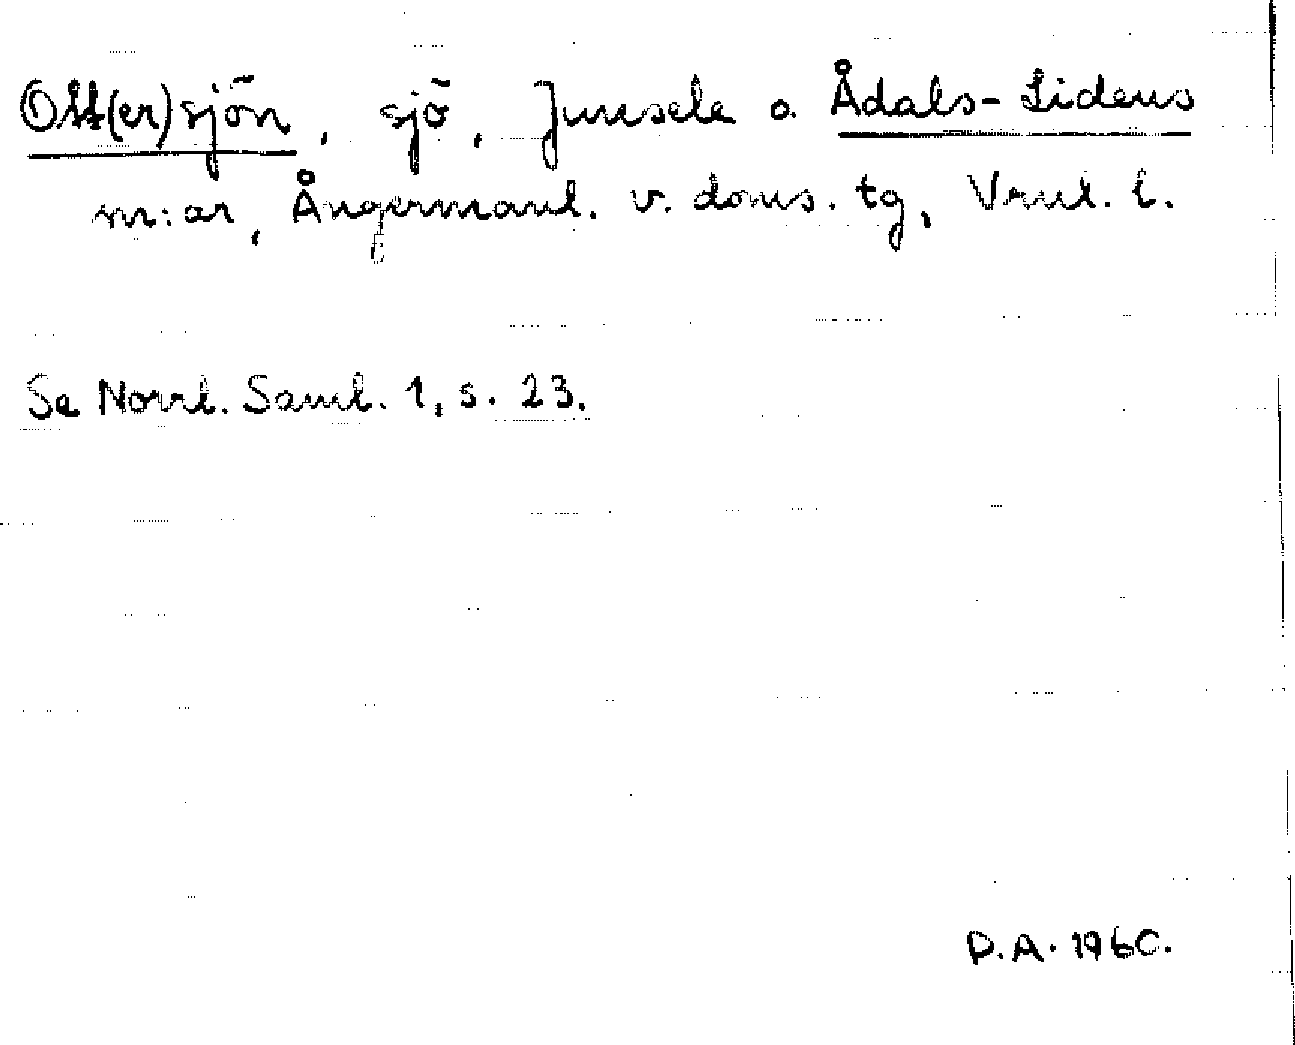 Ott(er)sjön, sjö, Junsele o. Ådals-Lidens
m:ar, Ångermanl. v. doms. tg, Vrnl. l.
Se Norrl. Saml. 1, s. 23.
D.A. 1960.